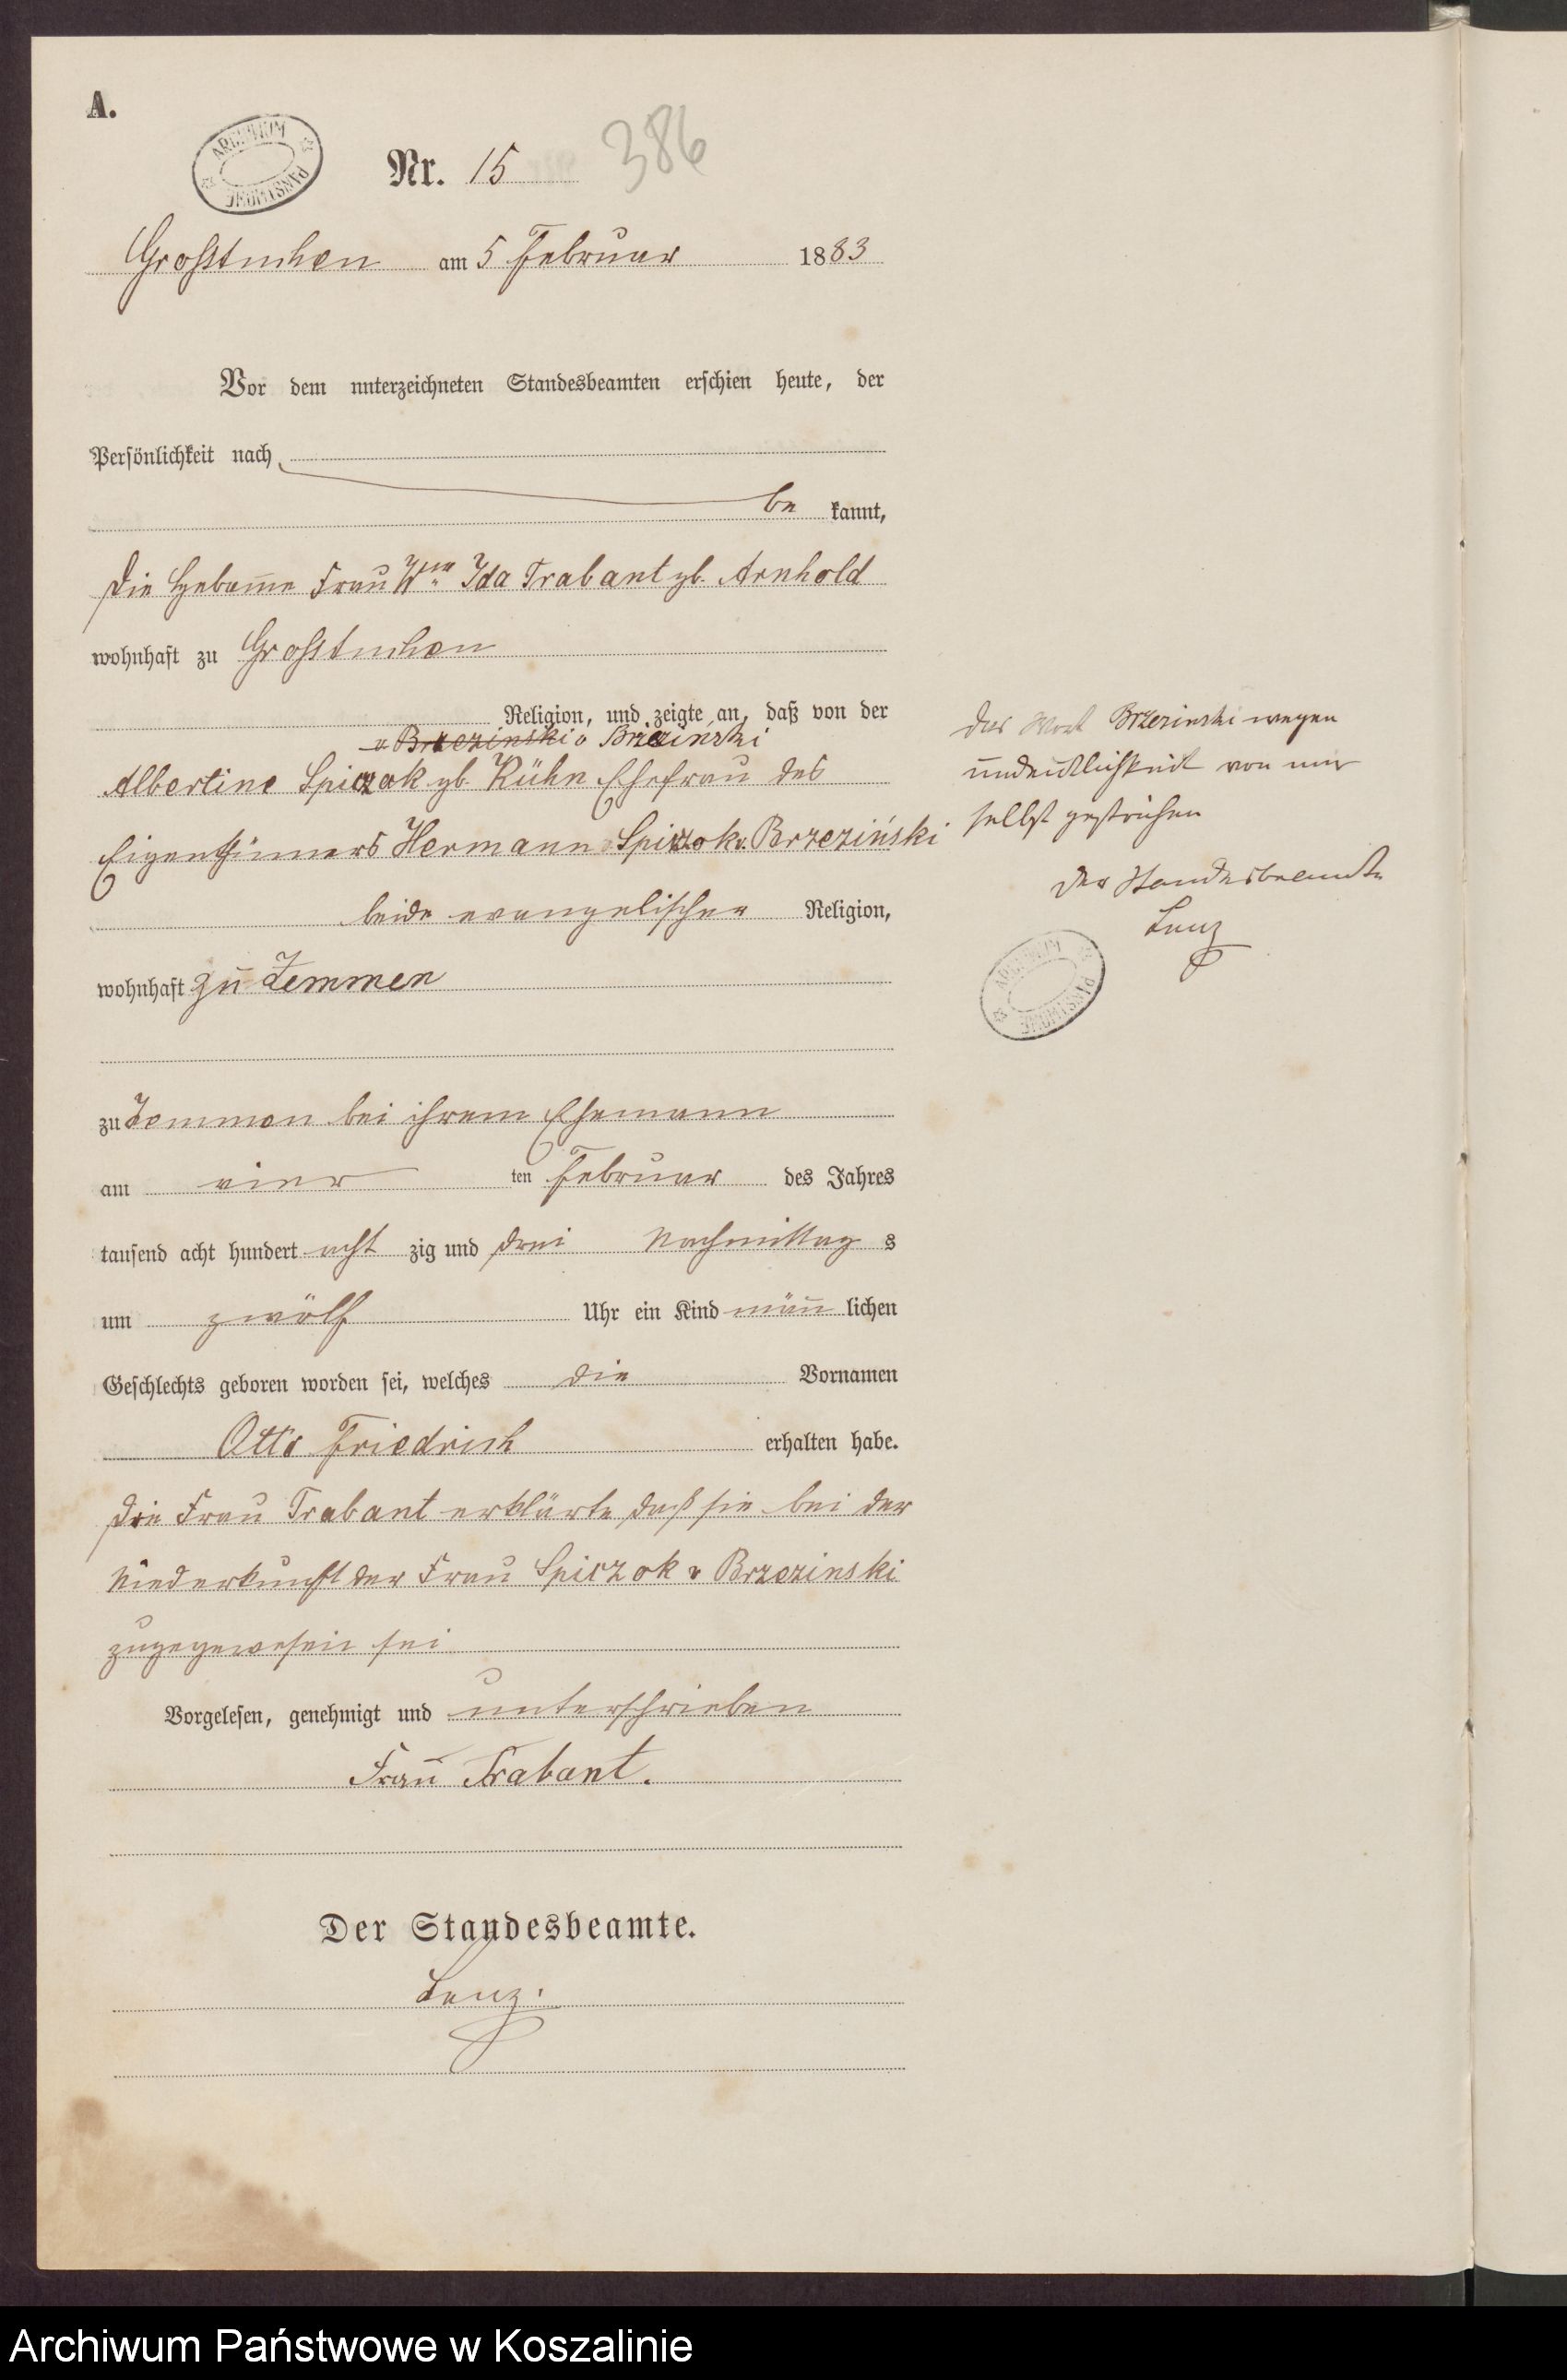 A.
ARCHIWUM PAŃSTWOWE
Nr. 15
386
Großtuchen am 5 Februar 1883
Vor dem unterzeichneten Standesbeamten erschien heute, der
Persönlichkeit nach
be kannt,
die Hebamme Frau Wwe Ida Trabant gb. Arnhold
wohnhaft zu Großtuchen
Religion, und zeigte an, daß von der
v Brzezinski v Brzezinski
Albertine Spiczak gb. Kühn Ehefrau des
Eigenthümers Hermann Spiczok v. Brzeziński
beide evangelischer Religion,
wohnhaft zu Zemmen
zu Zemmen bei ihrem Ehemann
am vier ten Februar des Jahres
tausend acht hundert acht zig und drei Nachmittag s
um zwölf Uhr ein Kind männ lichen
Geschlechts geboren worden sei, welches die Vornamen
Otto Friedrich erhalten habe.
Die Frau Trabant erklärte daß sie bei der
Niederkunft der Frau Spiczok v Brzezinski
zugegewesen sei
Vorgelesen, genehmigt und unterschrieben
Frau Trabant.
Der Standesbeamte.
Lenz.
Das Wort Brzezinski wegen
undeutlichkeit von mir
selbst gestrichen
Der Standesbeamte
Lenz
ARCHIWUM PAŃSTWOWE
Archiwum Państwowe w Koszalinie